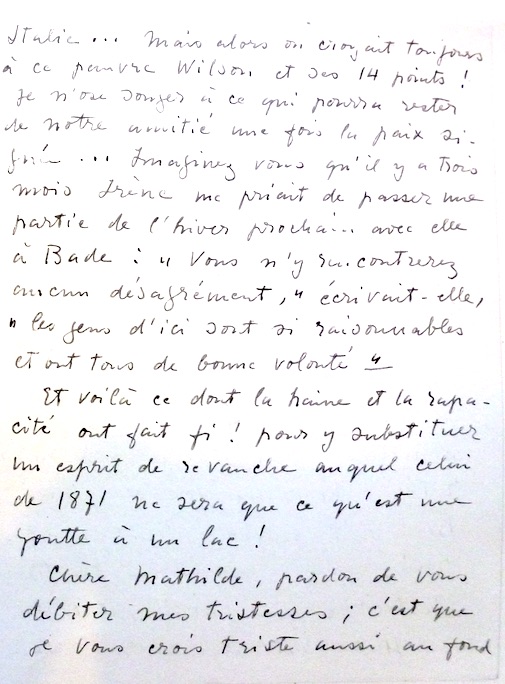 Italie ... Mais alors on croyait toujours
à ce pauvre Wilson et ses 14 points !
Je n'ose songer à ce qui pourra rester
de notre amitié une fois la paix si-
gnée ... Imaginez vous qu'il y a trois
mois Irène me priait de passer une
partie de l'hiver prochain avec elle
à Bade : " Vous n'y rencontrerez
aucun désagrément, " écrivait-elle,
" les gens d'ici sont si raisonnables
et ont tous de bonne volonté "
Et voilà ce dont la haine et la rapa-
cité ont fait fi ! pour y substituer
un esprit de revanche auquel celui
de 1871 ne sera que ce qu'est une
goutte à un lac !
Chère Mathilde, pardon de vous
débiter mes tristesses ; c'est que
je vous crois triste aussi au fond